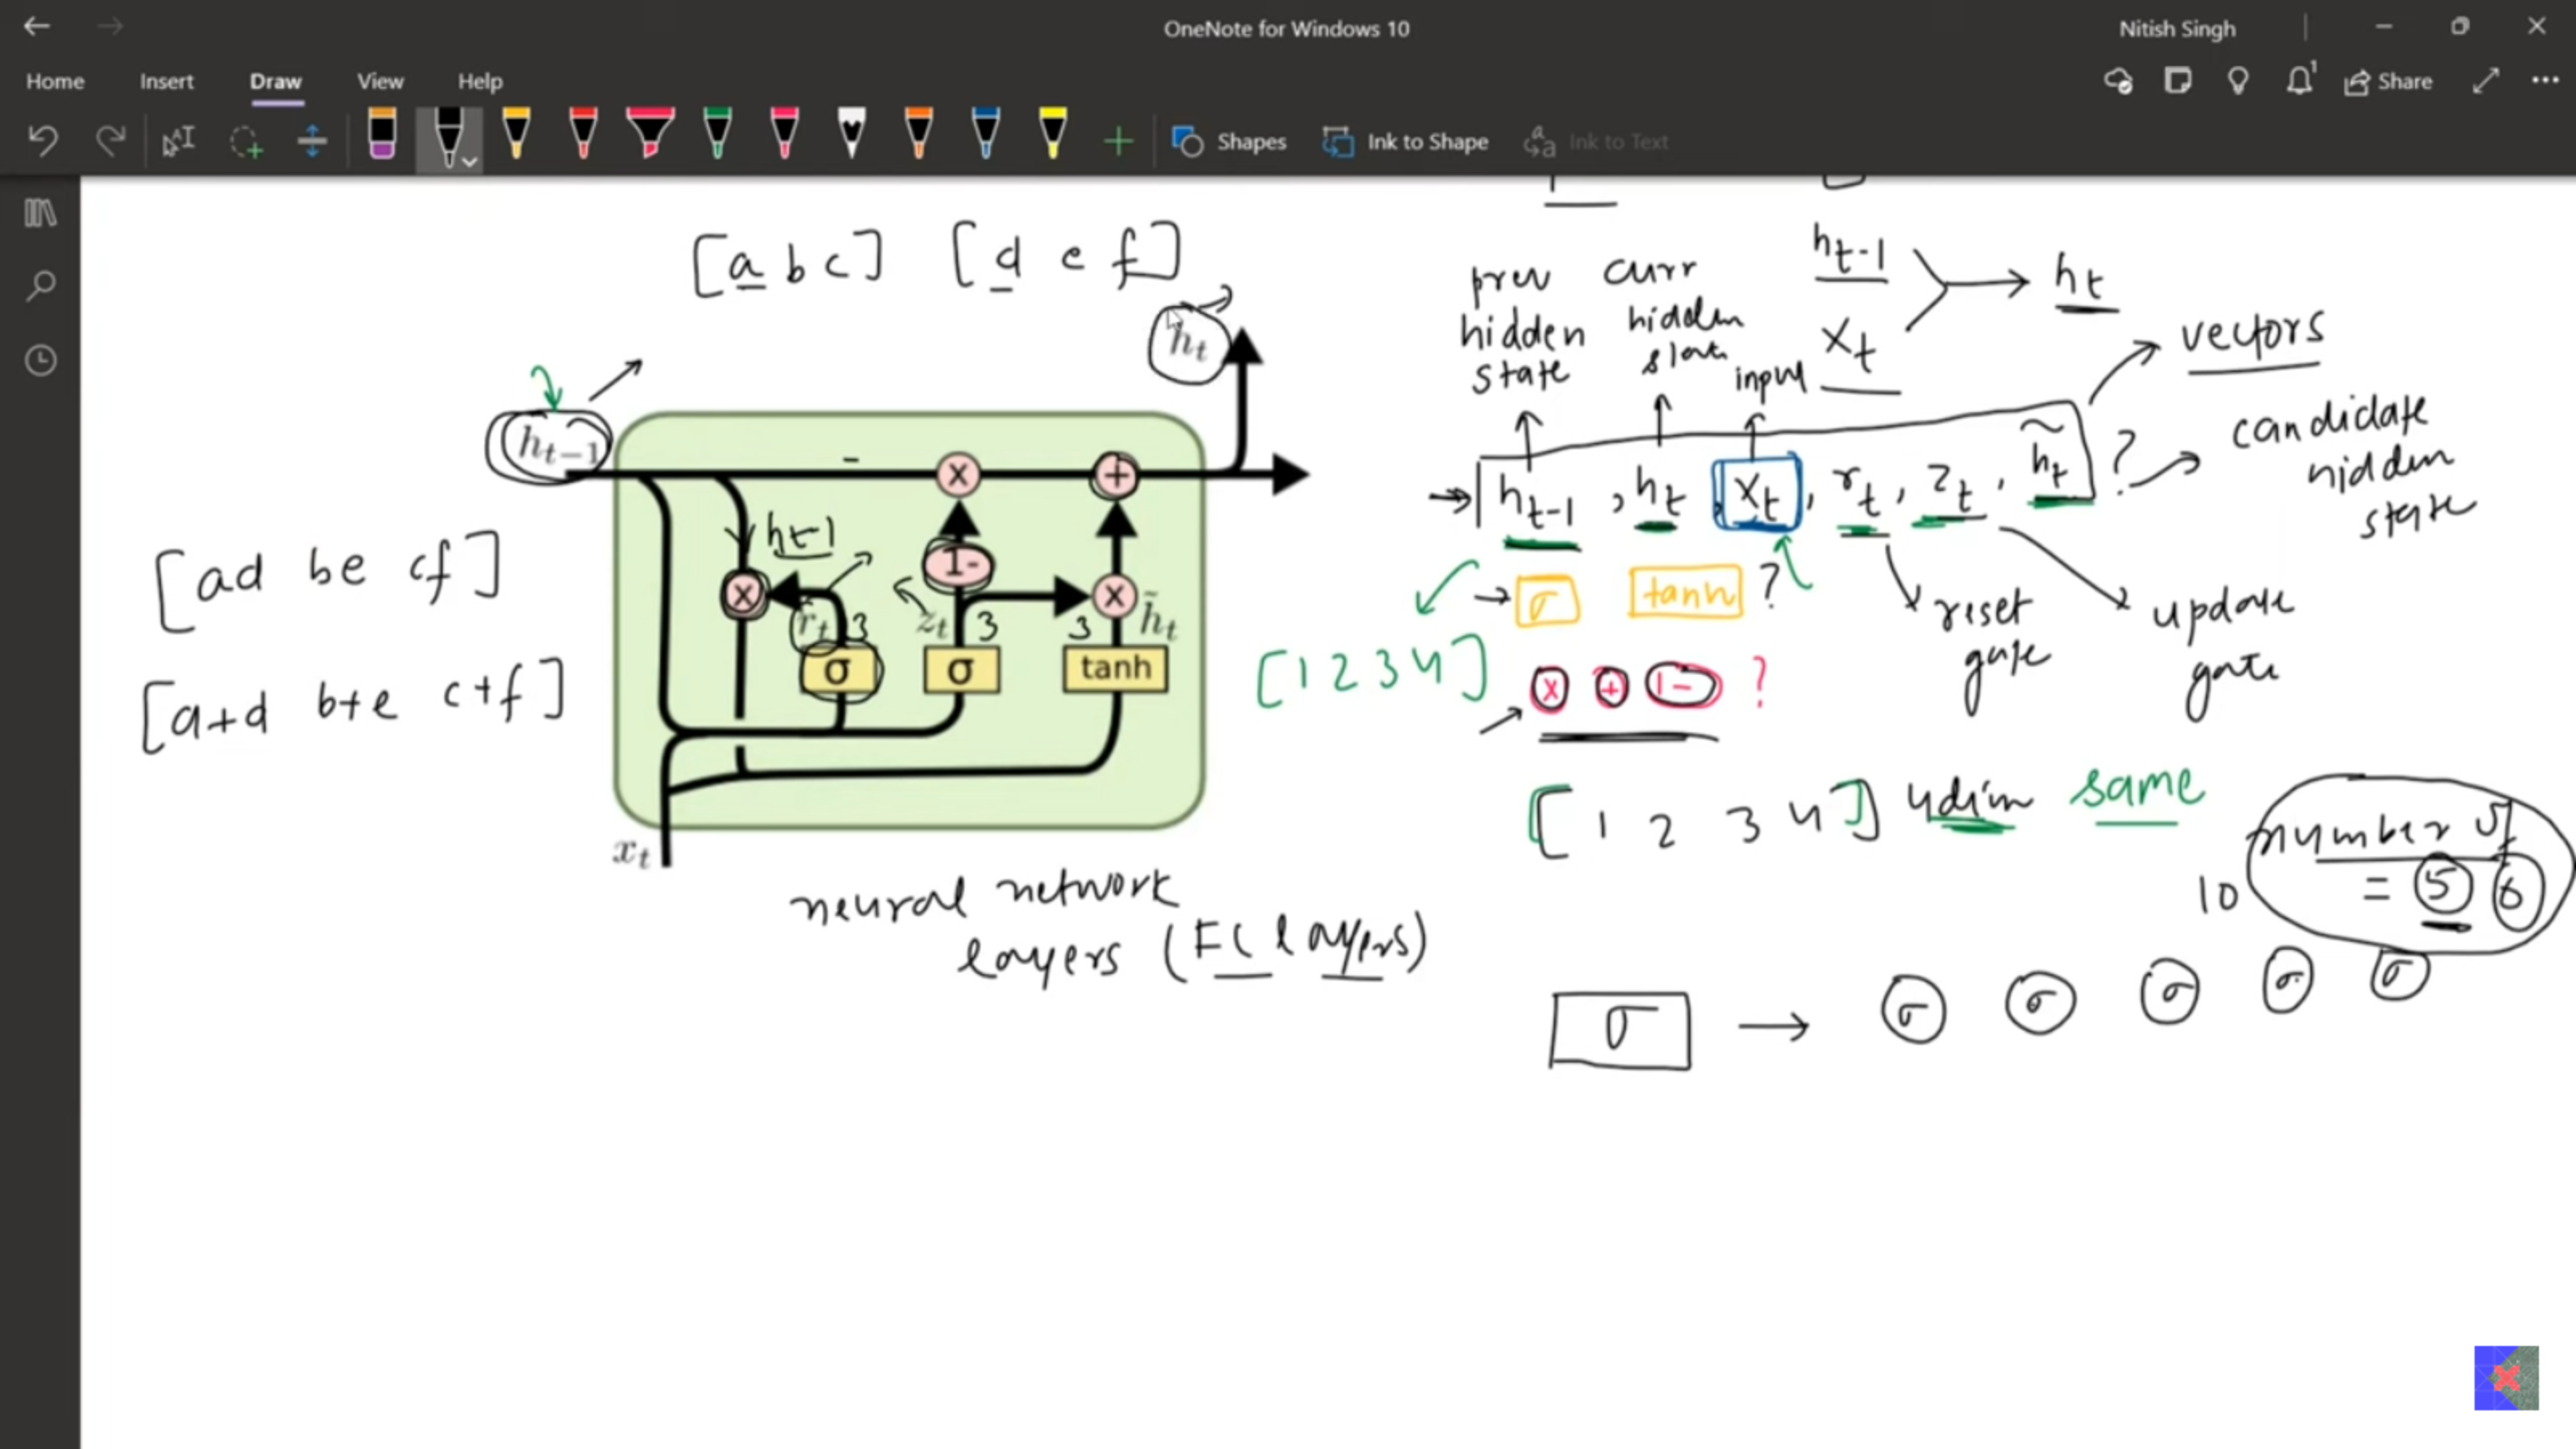 OneNote for Windows 10
Nitish Singh
Home Insert Draw View Help
1 Share
Shapes Ink to Shape Ink to Text
[a b c] [d e f]
h_t
h_{t-1}
[ad be cf]
[a+d b+e c+f]
-
× +
h_{t-1}
1-
× r_t 3 z_t 3 3 × h̃_t
σ σ tanh
x_t
neural network
layers (FC layers)
h_{t-1}
x_t
h_t
prev hidden state
curr hidden
input
vectors
h_{t-1}, h_t, x_t, r_t, z_t, h̃_t ?
candidate
hidden
state
σ tanh ?
reset
gate
update
gate
[1 2 3 4]
× + 1- ?
[1 2 3 4] 4dim same
number of
10 = 5 6
σ → σ σ σ σ σ